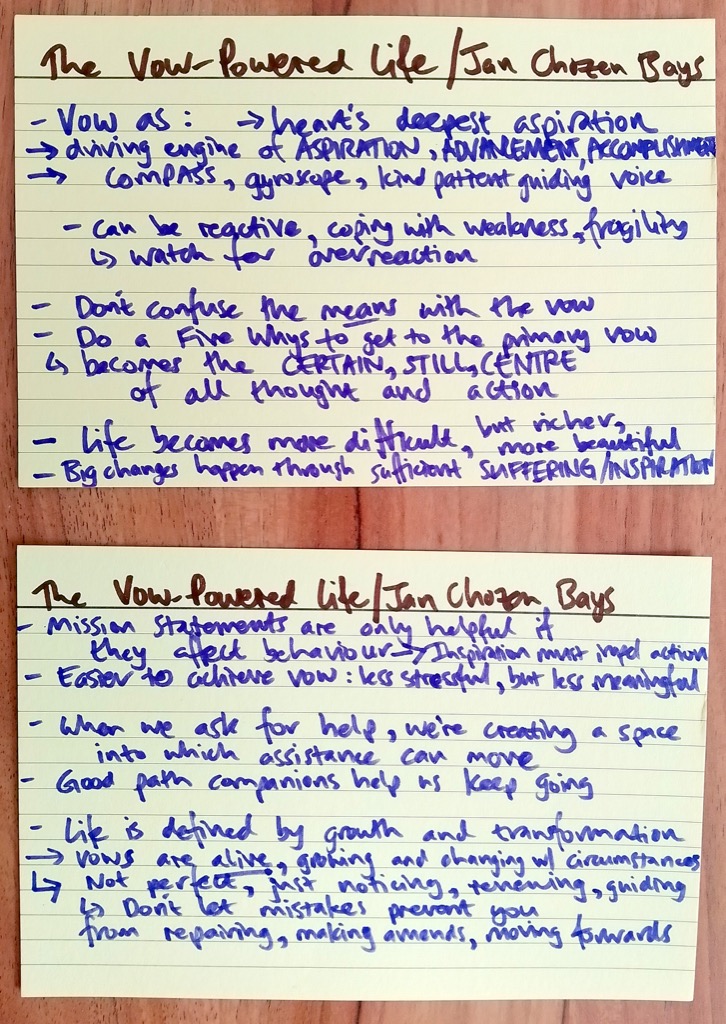 The Vow-Powered Life/Jan Chozen Bays
- Vow as: → heart's deepest aspiration
→ driving engine of ASPIRATION, ADVANCEMENT, ACCOMPLISHMENT
→ COMPASS, gyroscope, kind patient guiding voice
- can be reactive, coping with weakness, fragility
↳ watch for overreaction
- Don't confuse the means with the vow
- Do a Five Whys to get to the primary vow
↳ becomes the CERTAIN, STILL, CENTRE
of all thought and action
- Life becomes more difficult, but richer,
more beautiful
- Big changes happen through sufficient SUFFERING/INSPIRATION
The Vow-Powered Life/Jan Chozen Bays
- Mission statements are only helpful if
they affect behaviour → Inspiration must impel action
- Easier to achieve vow: less stressful, but less meaningful
- When we ask for help, we're creating a space
into which assistance can move
- Good path companions help us keep going
- Life is defined by growth and transformation
→ vows are alive, growing and changing w/ circumstances
↳ Not perfect, just noticing, renewing, guiding
↳ Don't let mistakes prevent you
from repairing, making amends, moving forwards